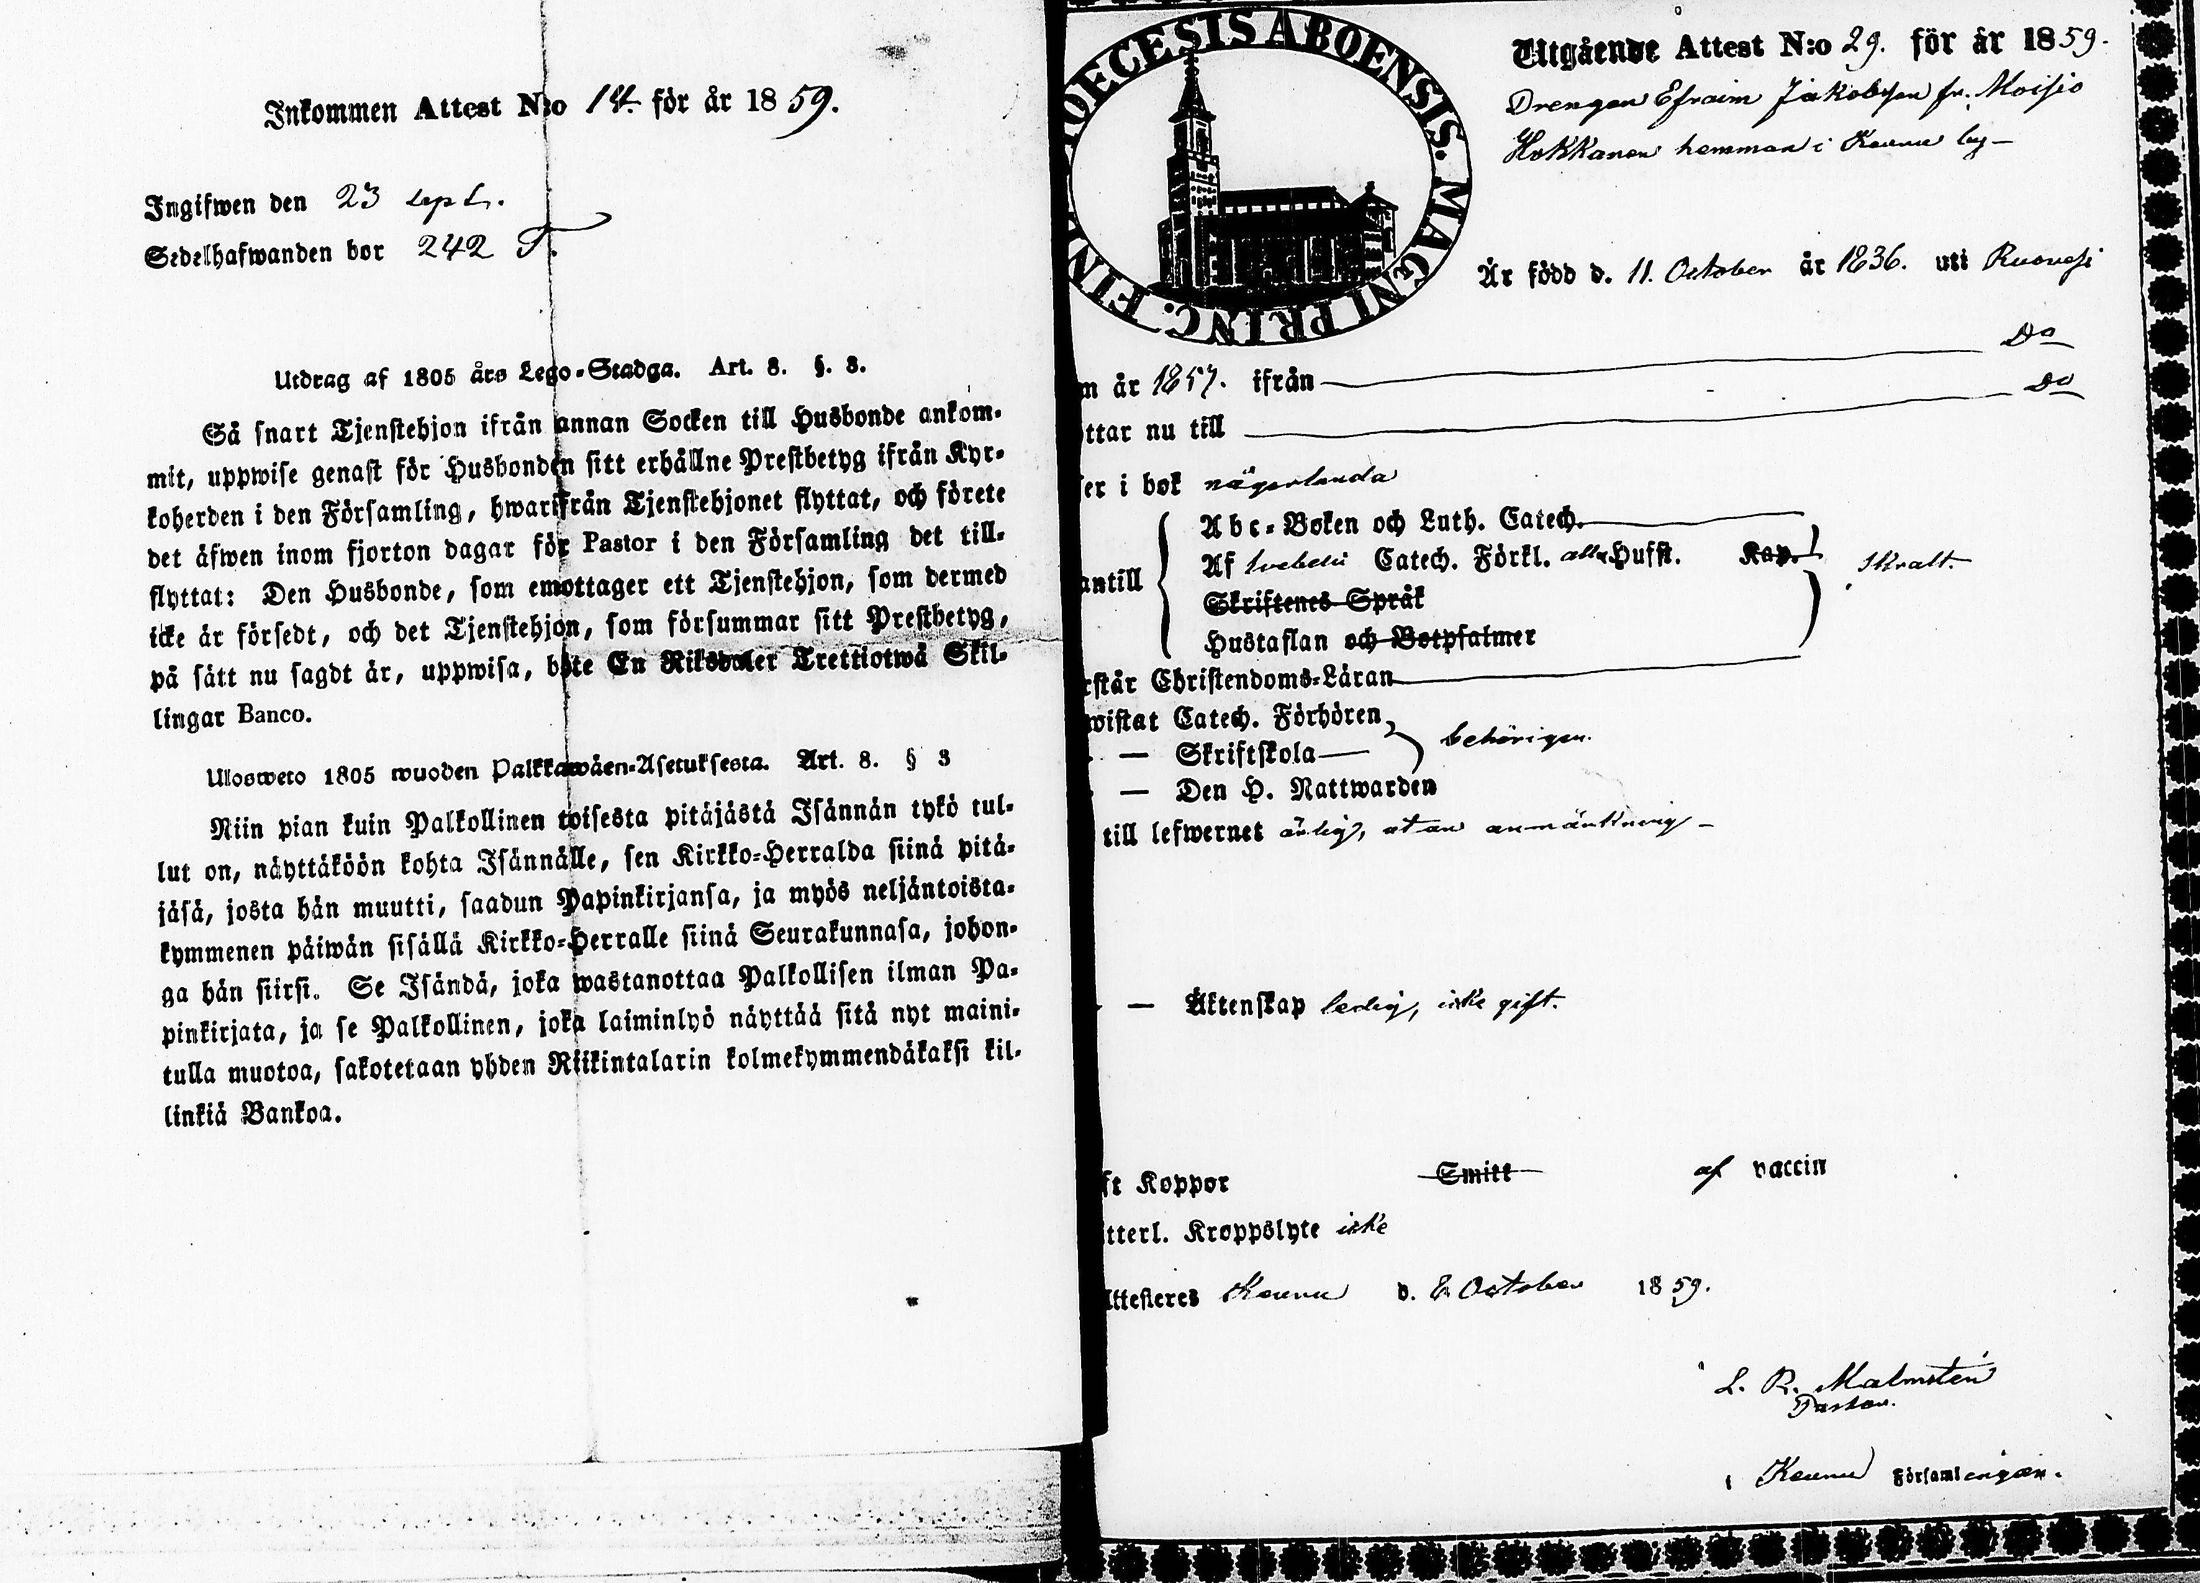 Inkommen Attest N:o för år 1859.
Ingifwen den 23 sept.
Sedelhafwanden bor 242 T.
Utdrag af 1805 års Lego-Stadga. Art. 8. §. 3.
Så snart Tjenstehjon ifrån annan Socken till Husbonde ankom-
mit, uppwise genast för Husbonden sitt erhållne Prestbetyg ifrån Kyr-
koherden i den Församling, hwarifrån Tjenstehjonet flyttat, och förete
det äfwen inom fjorton dagar för Pastor i den Församling det till-
flyttat: Den Husbonde, som emottager ett Tjenstehjon, som dermed
icke är försedt, och det Tjenstehjon, som försummar sitt Prestbetyg,
på sätt nu sagdt är, uppwisa, böte En Riksdaler Trettiotwå Skil-
lingar Banco.
Ulosweto 1805 wuoden Palkkawäen-Asetuksesta. Art. 8. § 3
Niin pian kuin Palkollinen toisesta pitäjästä Isännän tykö tul-
lut on, näyttäköön kohta Isännälle, sen Kirkko-Herralda siinä pitä-
jäsä, josta hän muutti, saadun Papinkirjansa, ja myös neljäntoista-
kymmenen päiwän sisällä Kirkko-Herralle siinä Seurakunnasa, johon-
ga hän siirsi. Se Isändä, joka wastanottaa Palkollisen ilman Pa-
pinkirjata, ja se Palkollinen, joka laiminlyö näyttää sitä nyt maini-
tulla muotoa, sakotetaan yhden Riikintalarin kolmekymmendäkaksi kil-
linkiä Bankoa.
OECESIS ABOENSIS. MAGNI PRINC. FIN
Utgående Attest N:o 29. för år 1859.
Drengen Efraim Jakobsson fr. Moisio
Hokkanen hemman i Keuru by—
Är född d. 11. October år 1836. uti Ruovesi
m år 1857. ifrån — Do
ttar nu till — Do
ser i bok någorlunda
antill
Abc-Boken och Luth. Catech.
Af Svebelii Catech. Förkl. alla Hufst. Kap.
Skriftenes Språk
Hustaflan och Botpsalmer
Skralt.
rstår Christendoms-Läran
wistat Catech. Förhören
— Skriftskola—
behörigen.
— Den H. Nattwarden
till lefwernet ärlig, utan anmärkning—
— Äktenskap ledig, icke gift.
ft Koppor Smitt af vaccin
tterl. Kroppslyte icke
ttesteres Keuru d. October 1859.
L. R. Malmstén
Pastor.
i Keuru Församlingen.